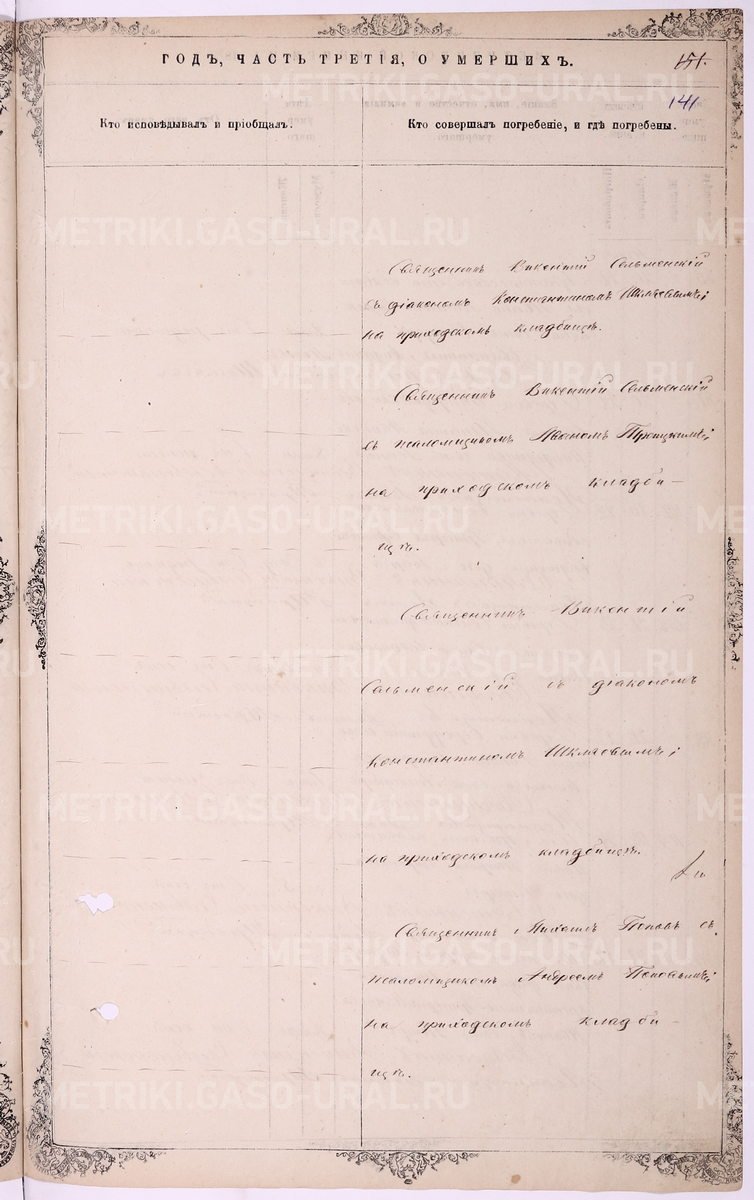 ГОДЪ, ЧАСТЬ ТРЕТІЯ, О УМЕРШИХЪ.
151.
141
Кто исповѣдывалъ и пріобщалъ.
Кто совершалъ погребеніе, и гдѣ погребены.
Священникъ Викентій Сельменскій
съ діакономъ Константиномъ Шкляевымъ;
на приходскомъ кладбищѣ.
Священникъ Викентій Сельменскій
съ псаломщикомъ Іваномъ Троицкимъ;
на приходскомъ кладби-
щѣ.
Священникъ Викентій
Сельменскій съ діакономъ
Константиномъ Шкляевымъ;
на приходскомъ кладбищѣ.
Священникъ Михаилъ Поповъ съ
псаломщикомъ Андреемъ Поповымъ;
на приходскомъ кладби-
щѣ.
METRIKI.GASO-URAL.RU